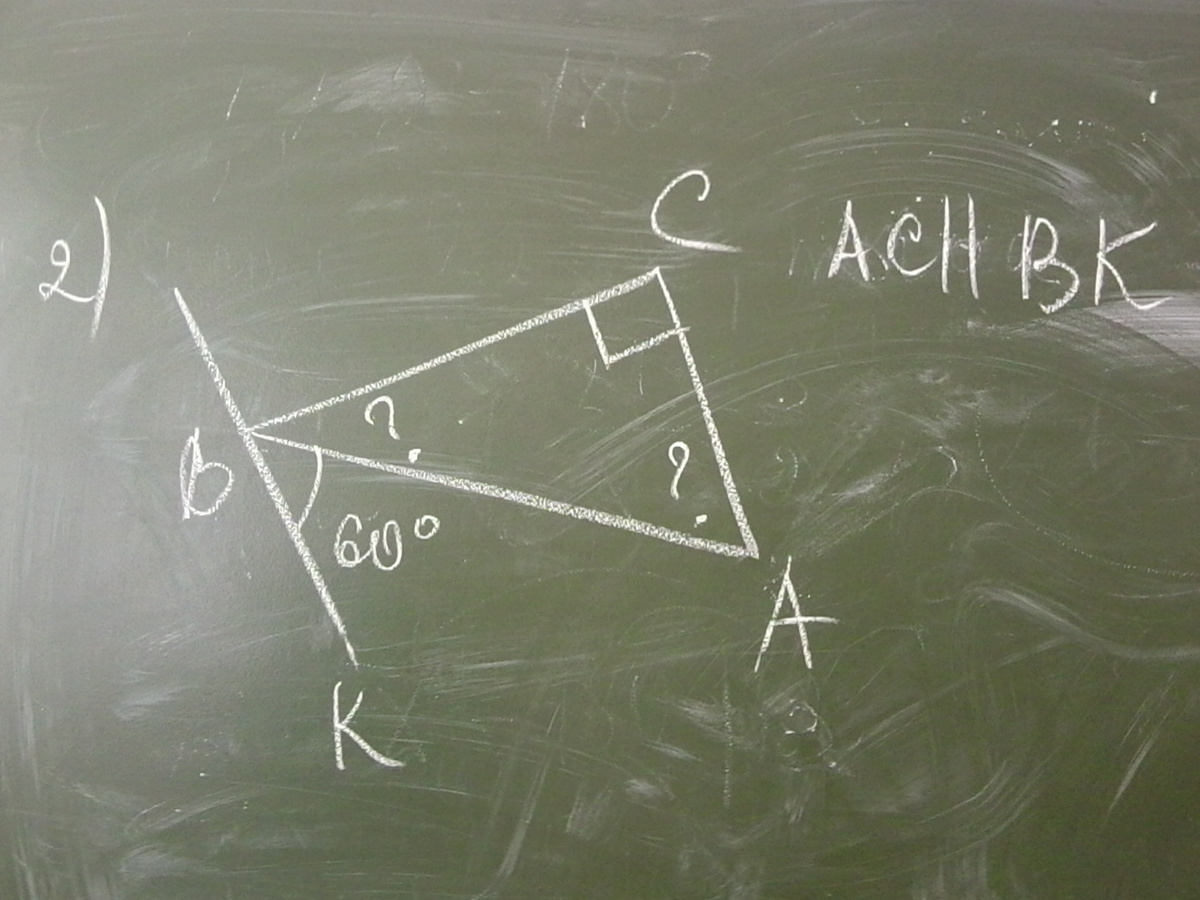 2)
C
AC || BK
?
B
?
60°
A
K